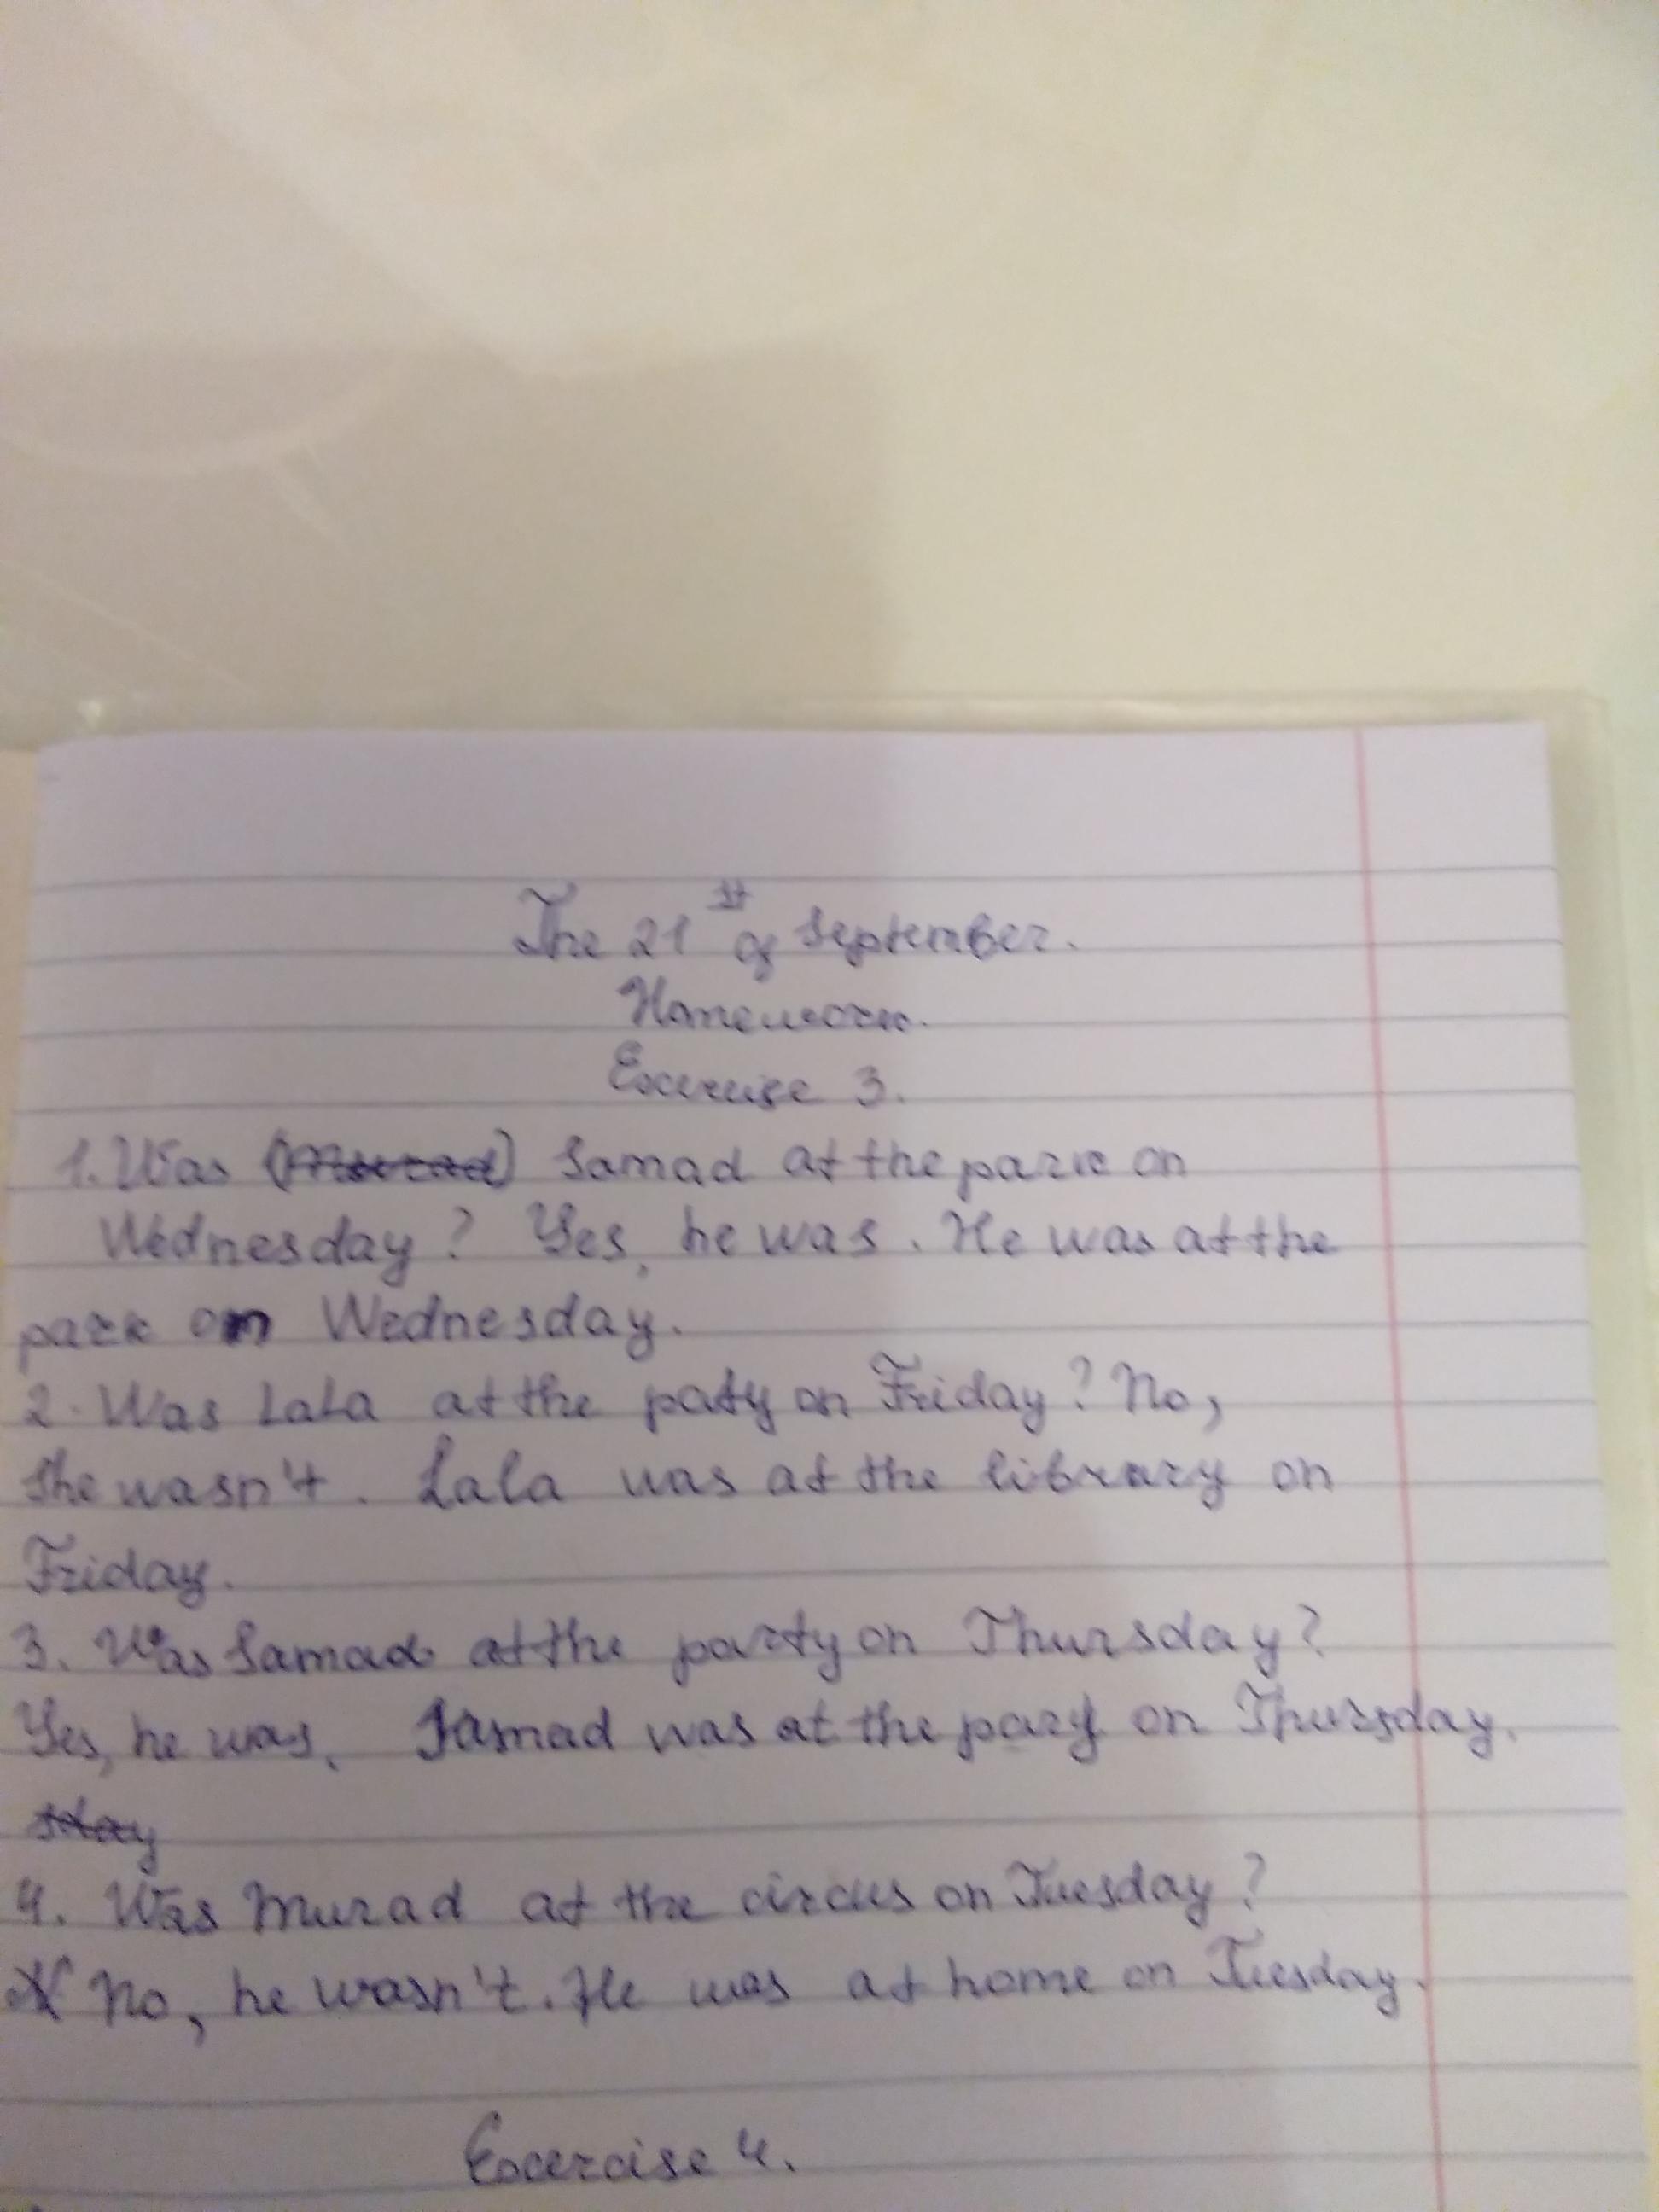 The 21st of September.
Homework.
Exercise 3.
1. Was (Murad) Samad at the park on
Wednesday? Yes, he was. He was at the
park on Wednesday.
2. Was Lala at the paty on Friday? No,
she wasn't. Lala was at the library on
Friday.
3. Was Samad at the party on Thursday?
Yes, he was. Samad was at the pary on Thursday.
sday
4. Was Murad at the circus on Tuesday?
No, he wasn't. He was at home on Tuesday.
Exercise 4.